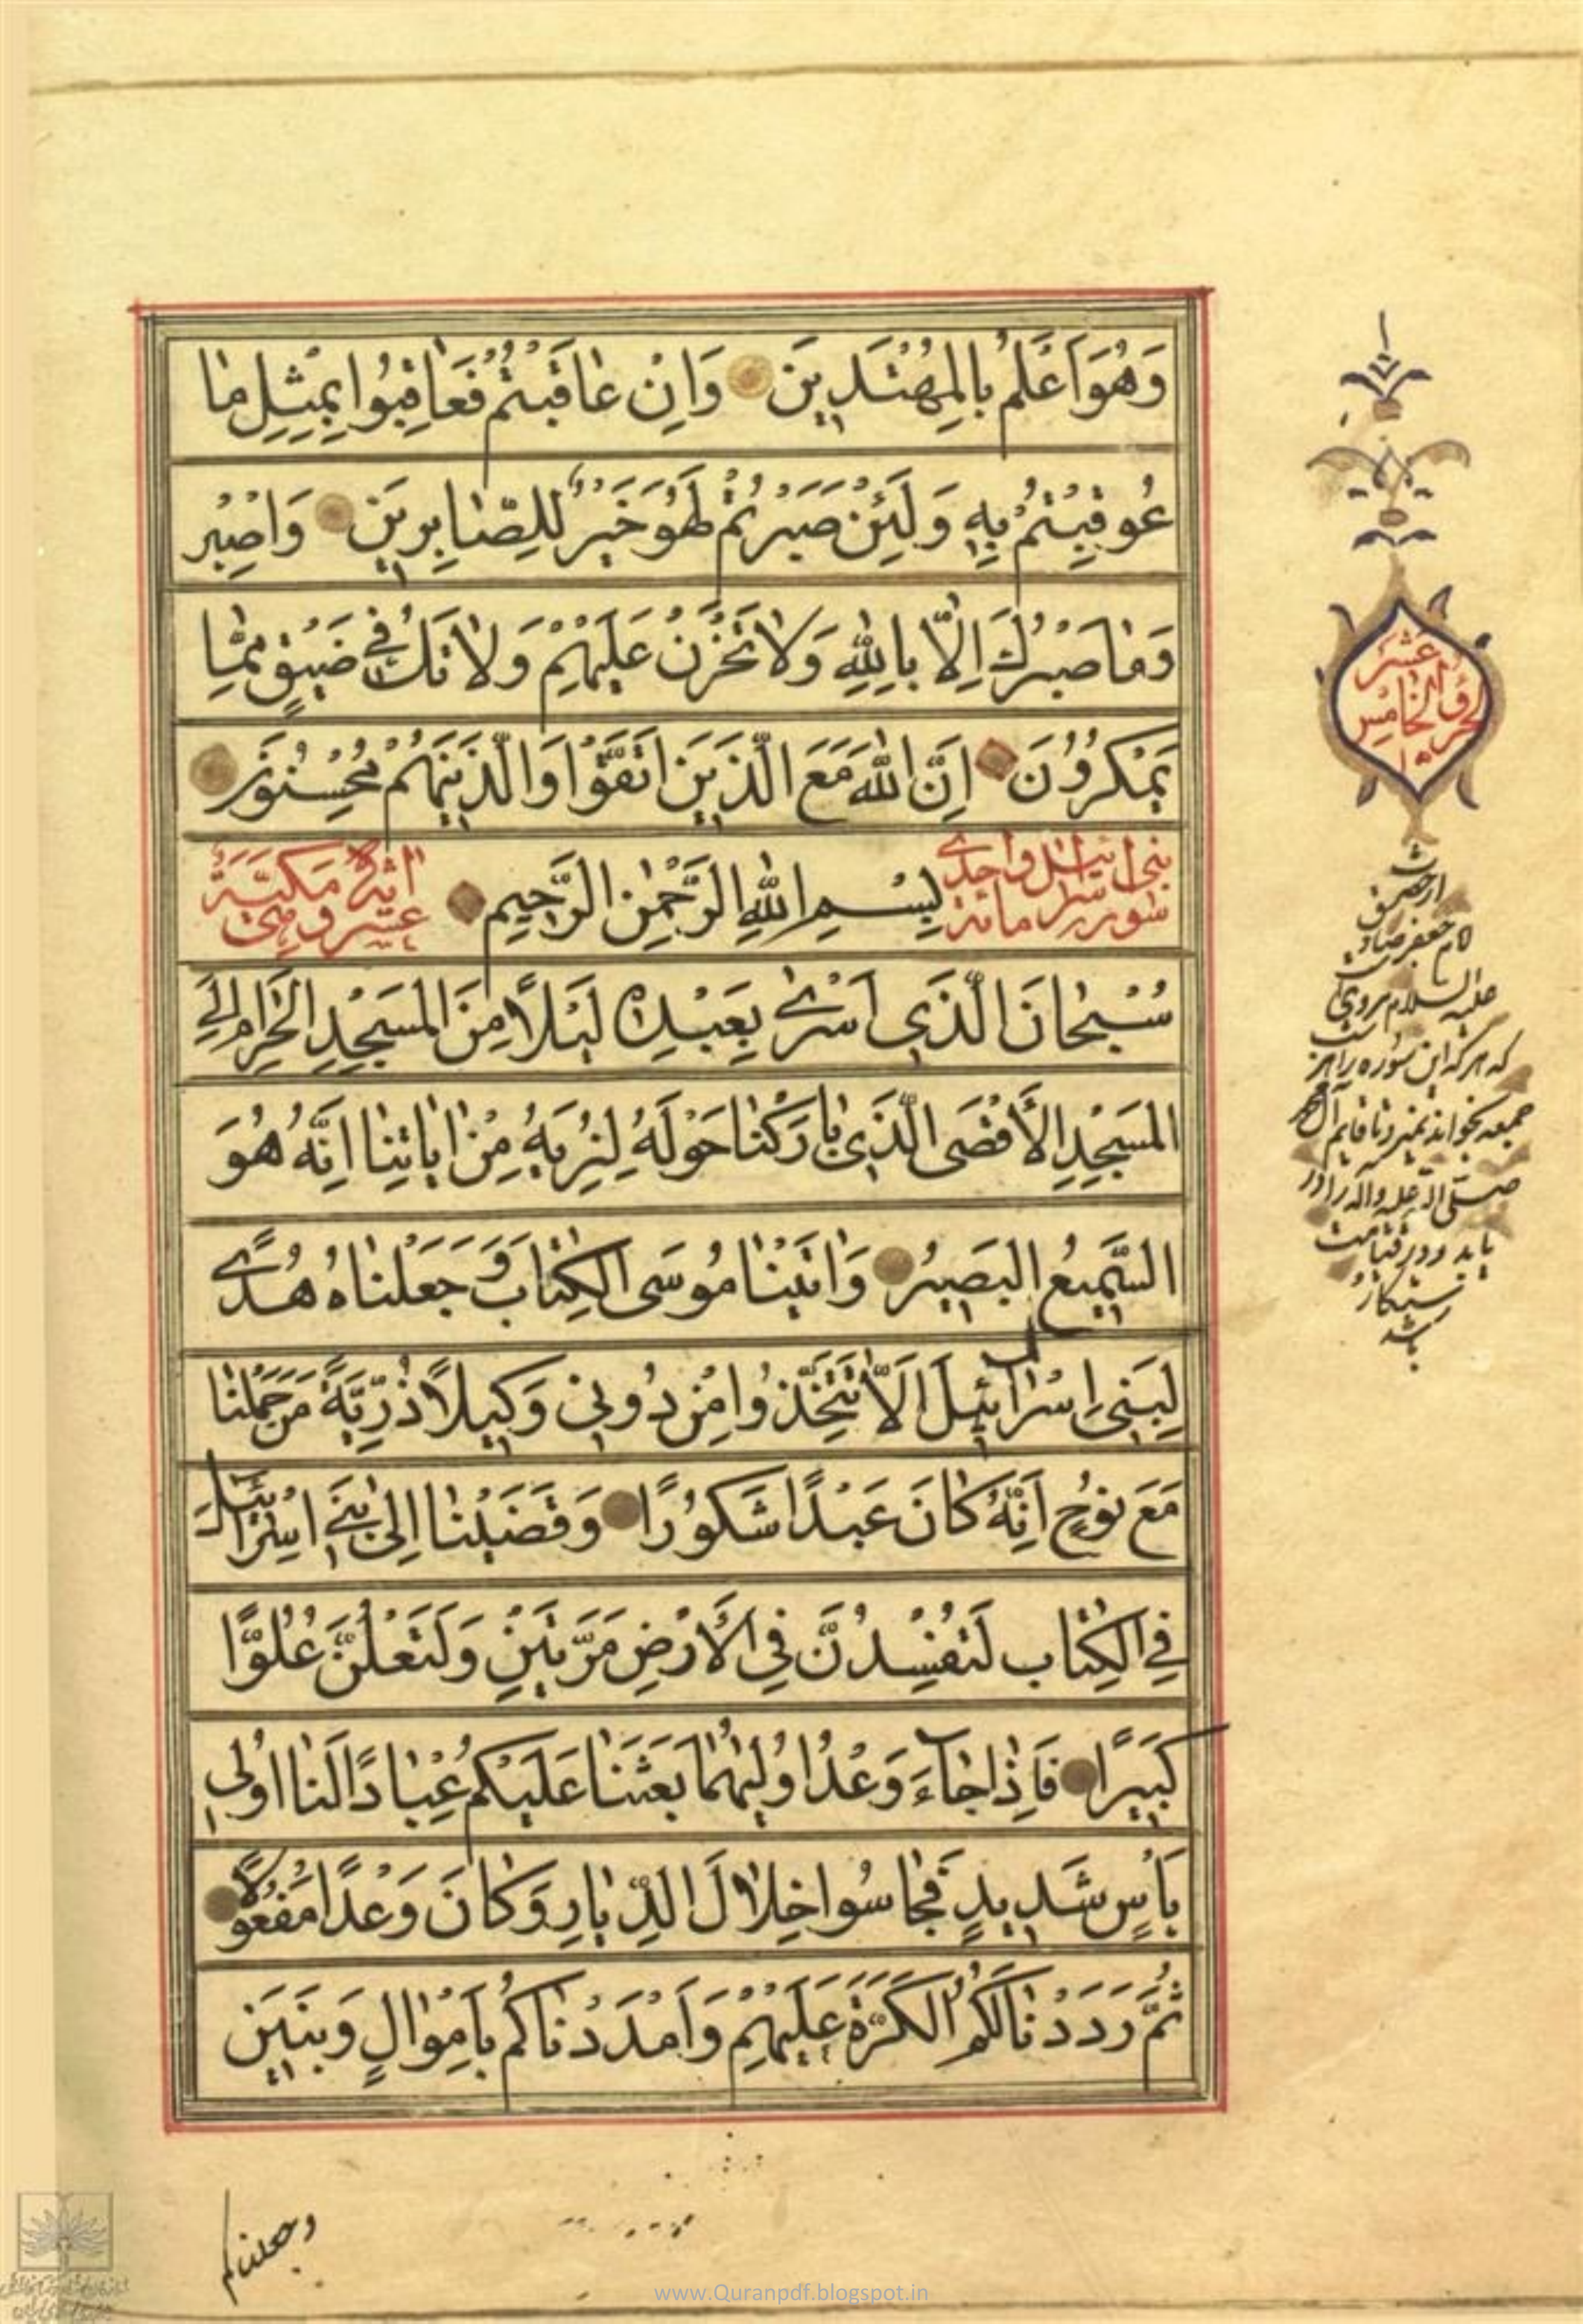 وَهُوَ اَعْلَمُ بِالْمُهْتَدِينَ وَاِنْ عَاقَبْتُمْ فَعَاقِبُوا بِمِثْلِ مَا
عُوقِبْتُمْ بِهِ وَلَئِنْ صَبَرْتُمْ لَهُوَ خَيْرٌ لِلصَّابِرِينَ وَاصْبِرْ
وَمَا صَبْرُكَ اِلَّا بِاللّٰهِ وَلَا تَحْزَنْ عَلَيْهِمْ وَلَا تَكُ فِي ضَيْقٍ مِمَّا
يَمْكُرُونَ اِنَّ اللّٰهَ مَعَ الَّذِينَ اتَّقَوْا وَالَّذِينَ هُمْ مُحْسِنُونَ
سورة بنى اسرائيل مائة واحدى
بِسْمِ اللّٰهِ الرَّحْمٰنِ الرَّحِيمِ
عشر اية وهى مكيّة
سُبْحَانَ الَّذِي اَسْرٰى بِعَبْدِهِ لَيْلًا مِنَ الْمَسْجِدِ الْحَرَامِ اِلَى
الْمَسْجِدِ الْاَقْصَى الَّذِي بَارَكْنَا حَوْلَهُ لِنُرِيَهُ مِنْ اٰيَاتِنَا اِنَّهُ هُوَ
السَّمِيعُ الْبَصِيرُ وَاٰتَيْنَا مُوسَى الْكِتَابَ وَجَعَلْنَاهُ هُدًى
لِبَنِي اِسْرَائِيلَ اَلَّا تَتَّخِذُوا مِنْ دُونِي وَكِيلًا ذُرِّيَّةَ مَنْ حَمَلْنَا
مَعَ نُوحٍ اِنَّهُ كَانَ عَبْدًا شَكُورًا وَقَضَيْنَا اِلٰى بَنِي اِسْرَائِيلَ
فِي الْكِتَابِ لَتُفْسِدُنَّ فِي الْاَرْضِ مَرَّتَيْنِ وَلَتَعْلُنَّ عُلُوًّا
كَبِيرًا فَاِذَا جَاءَ وَعْدُ اُولٰيهُمَا بَعَثْنَا عَلَيْكُمْ عِبَادًا لَنَا اُولِي
بَأْسٍ شَدِيدٍ فَجَاسُوا خِلَالَ الدِّيَارِ وَكَانَ وَعْدًا مَفْعُولًا
ثُمَّ رَدَدْنَا لَكُمُ الْكَرَّةَ عَلَيْهِمْ وَاَمْدَدْنَاكُمْ بِاَمْوَالٍ وَبَنِينَ
وجعلناكم
الجزؤ الخامس عشر
١٥
از حضرت
امام جعفر صادق
عليه السلام مرويست
كه هر كه اين سوره را هر
جمعه بخواند نميرد تا قايم آل محمد
صلى الله عليه واله را در
يابد و در قيامت
رستكار
باشد
www.Quranpdf.blogspot.in